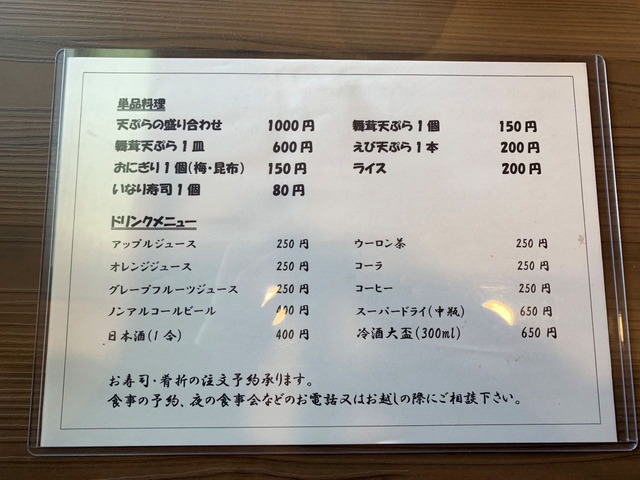 単品料理
天ぷらの盛り合わせ 1000円 舞茸天ぷら1個 150円
舞茸天ぷら1皿 600円 えび天ぷら1本 200円
おにぎり1個(梅・昆布) 150円 ライス 200円
いなり寿司1個 80円
ドリンクメニュー
アップルジュース 250円 ウーロン茶 250円
オレンジジュース 250円 コーラ 250円
グレープフルーツジュース 250円 コーヒー 250円
ノンアルコールビール 400円 スーパードライ(中瓶) 650円
日本酒(1合) 400円 冷酒大盃(300ml) 650円
お寿司・肴折の注文予約承ります。
食事の予約、夜の食事会などのお電話又はお越しの際にご相談下さい。